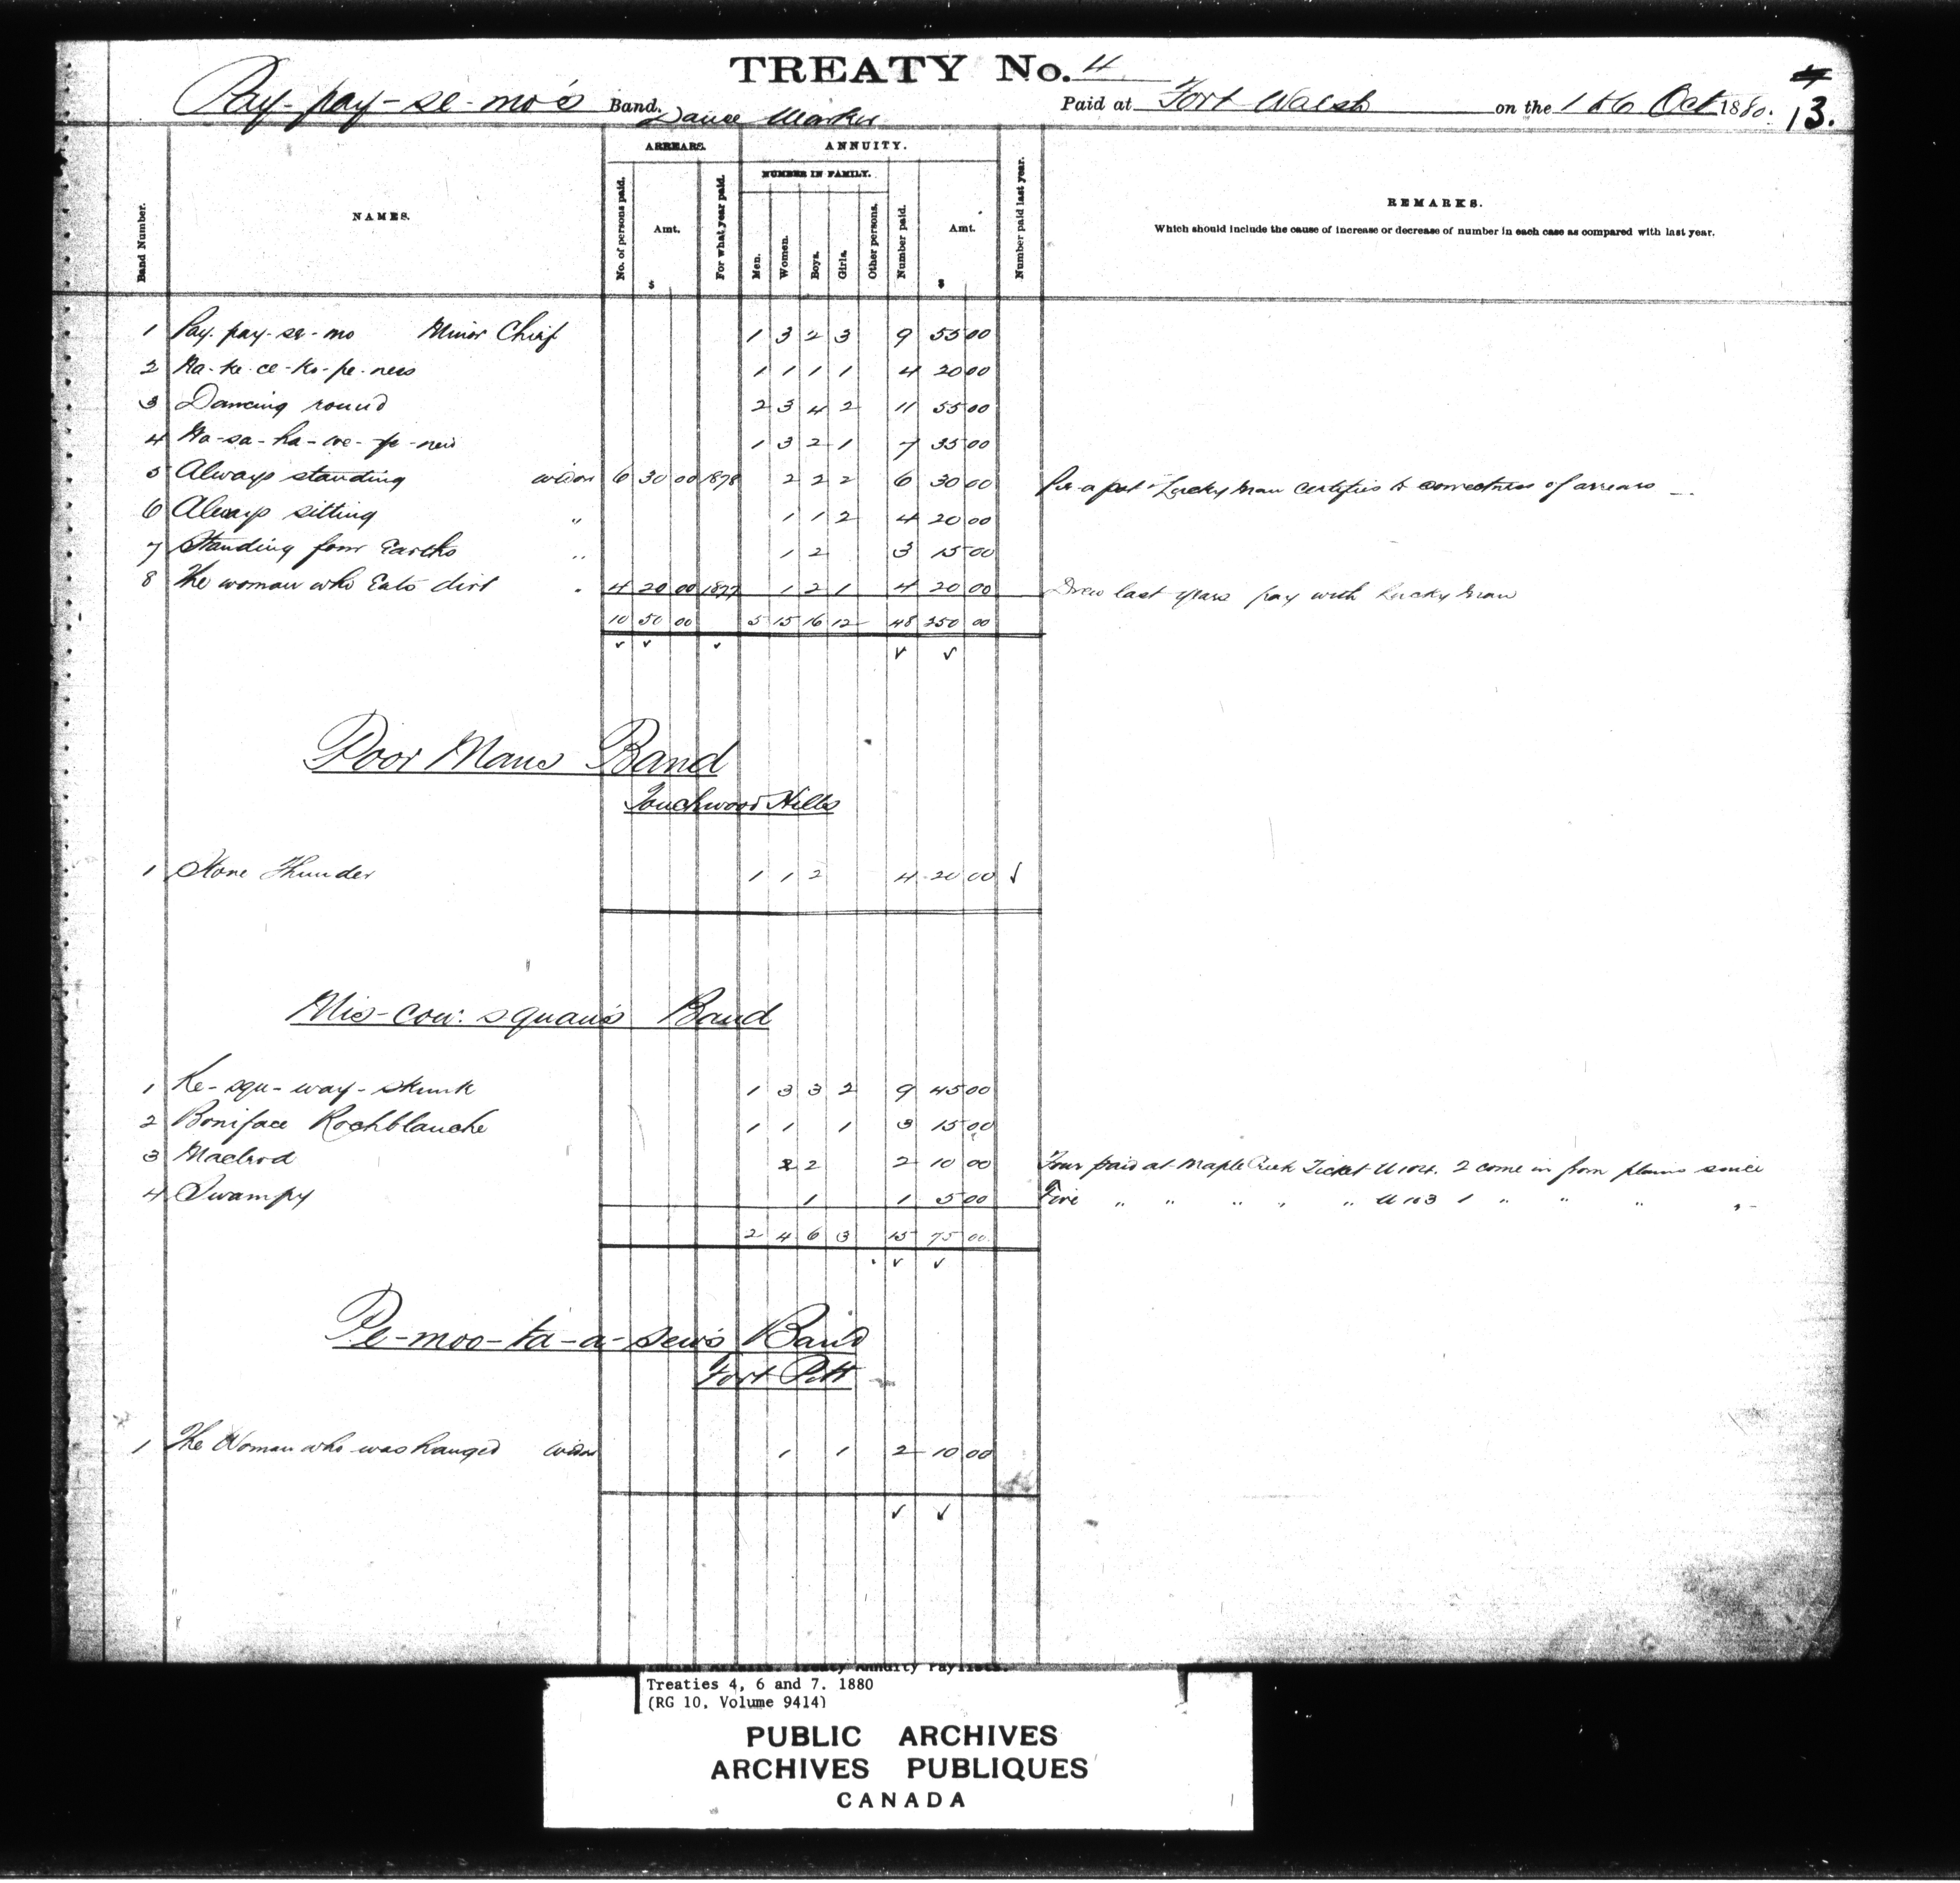 TREATY No. 4
Pay-pay-se-mo's Band. Paid at Fort Walsh on the 1st to 6 Oct 1880. 13.
Dance Maker
ARREARS. ANNUITY.
NUMBER IN FAMILY.
Band Number. NAMES. No. of persons paid. Amt. $ For what year paid. Men. Women. Boys. Girls. Other persons. Number paid. Amt. $ Number paid last year. REMARKS.
Which should include the cause of increase or decrease of number in each case as compared with last year.
1 Pay-pay-se-mo Minor Chief 1 3 2 3 9 55 00
2 Na-ke-ce-ko-pe-ness 1 1 1 1 4 20 00
3 Dancing round 2 3 4 2 11 55 00
4 1 3 2 1 7 35 00
5 Always standing widow 6 30 00 1878 2 2 2 6 30 00 Lucky Man certifies to correctness of arrears
6 Always sitting " 1 1 2 4 20 00
7 Standing four Earths " 1 2 3 15 00
8 The woman who Eats dirt " 4 20 00 1877 1 2 1 4 20 00 Drew last years pay with Lucky Man
10 50 00 5 15 16 12 48 250 00
Poor Mans Band
Touchwood Hills
1 Stone Thunder 1 1 2 4 20 00
Mis-cow-squan's Band
1 Ke-squ-way-skunk 1 3 3 2 9 45 00
2 Boniface Rochblanche 1 1 1 3 15 00
3 Macleod 2 2 10 00 Four paid at Maple Creek Ticket U 104. 2 come in from plains since
4 Swampy 1 1 5 00 Five " " " " " U 103 1 " " " "
2 4 6 3 15 75 00
Pe-moo-ta-a-sew's Band
Fort Pitt
1 The Woman who was hanged widow 1 1 2 10 00
Indian Affairs. Treaty Annuity Paylists.
Treaties 4, 6 and 7. 1880
(RG 10, Volume 9414)
PUBLIC ARCHIVES
ARCHIVES PUBLIQUES
CANADA